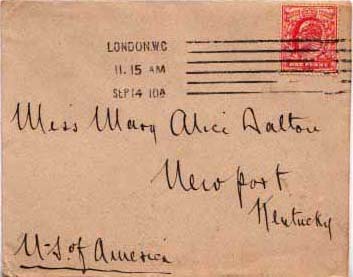 LONDON.W.C
11.15 AM
SEP 14 10A
ONE PENNY
Miss Mary Alice Dalton
Newport
Kentucky
U-S. of America